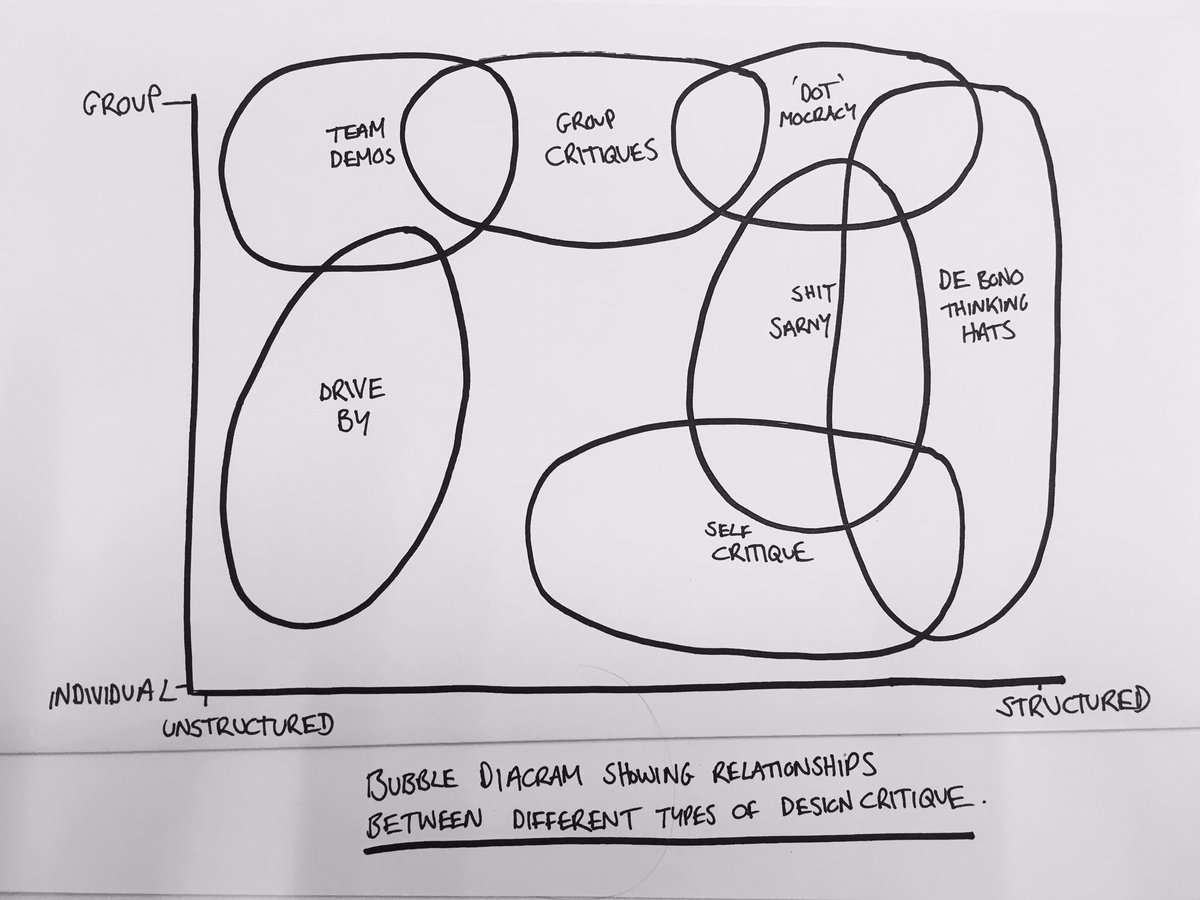 GROUP
TEAM
DEMOS
GROUP
CRITIQUES
'DOT'
MOCRACY
SHIT
SARNY
DE BONO
THINKING
HATS
DRIVE
BY
SELF
CRITIQUE
INDIVIDUAL
UNSTRUCTURED
STRUCTURED
BUBBLE DIAGRAM SHOWING RELATIONSHIPS
BETWEEN DIFFERENT TYPES OF DESIGN CRITIQUE.